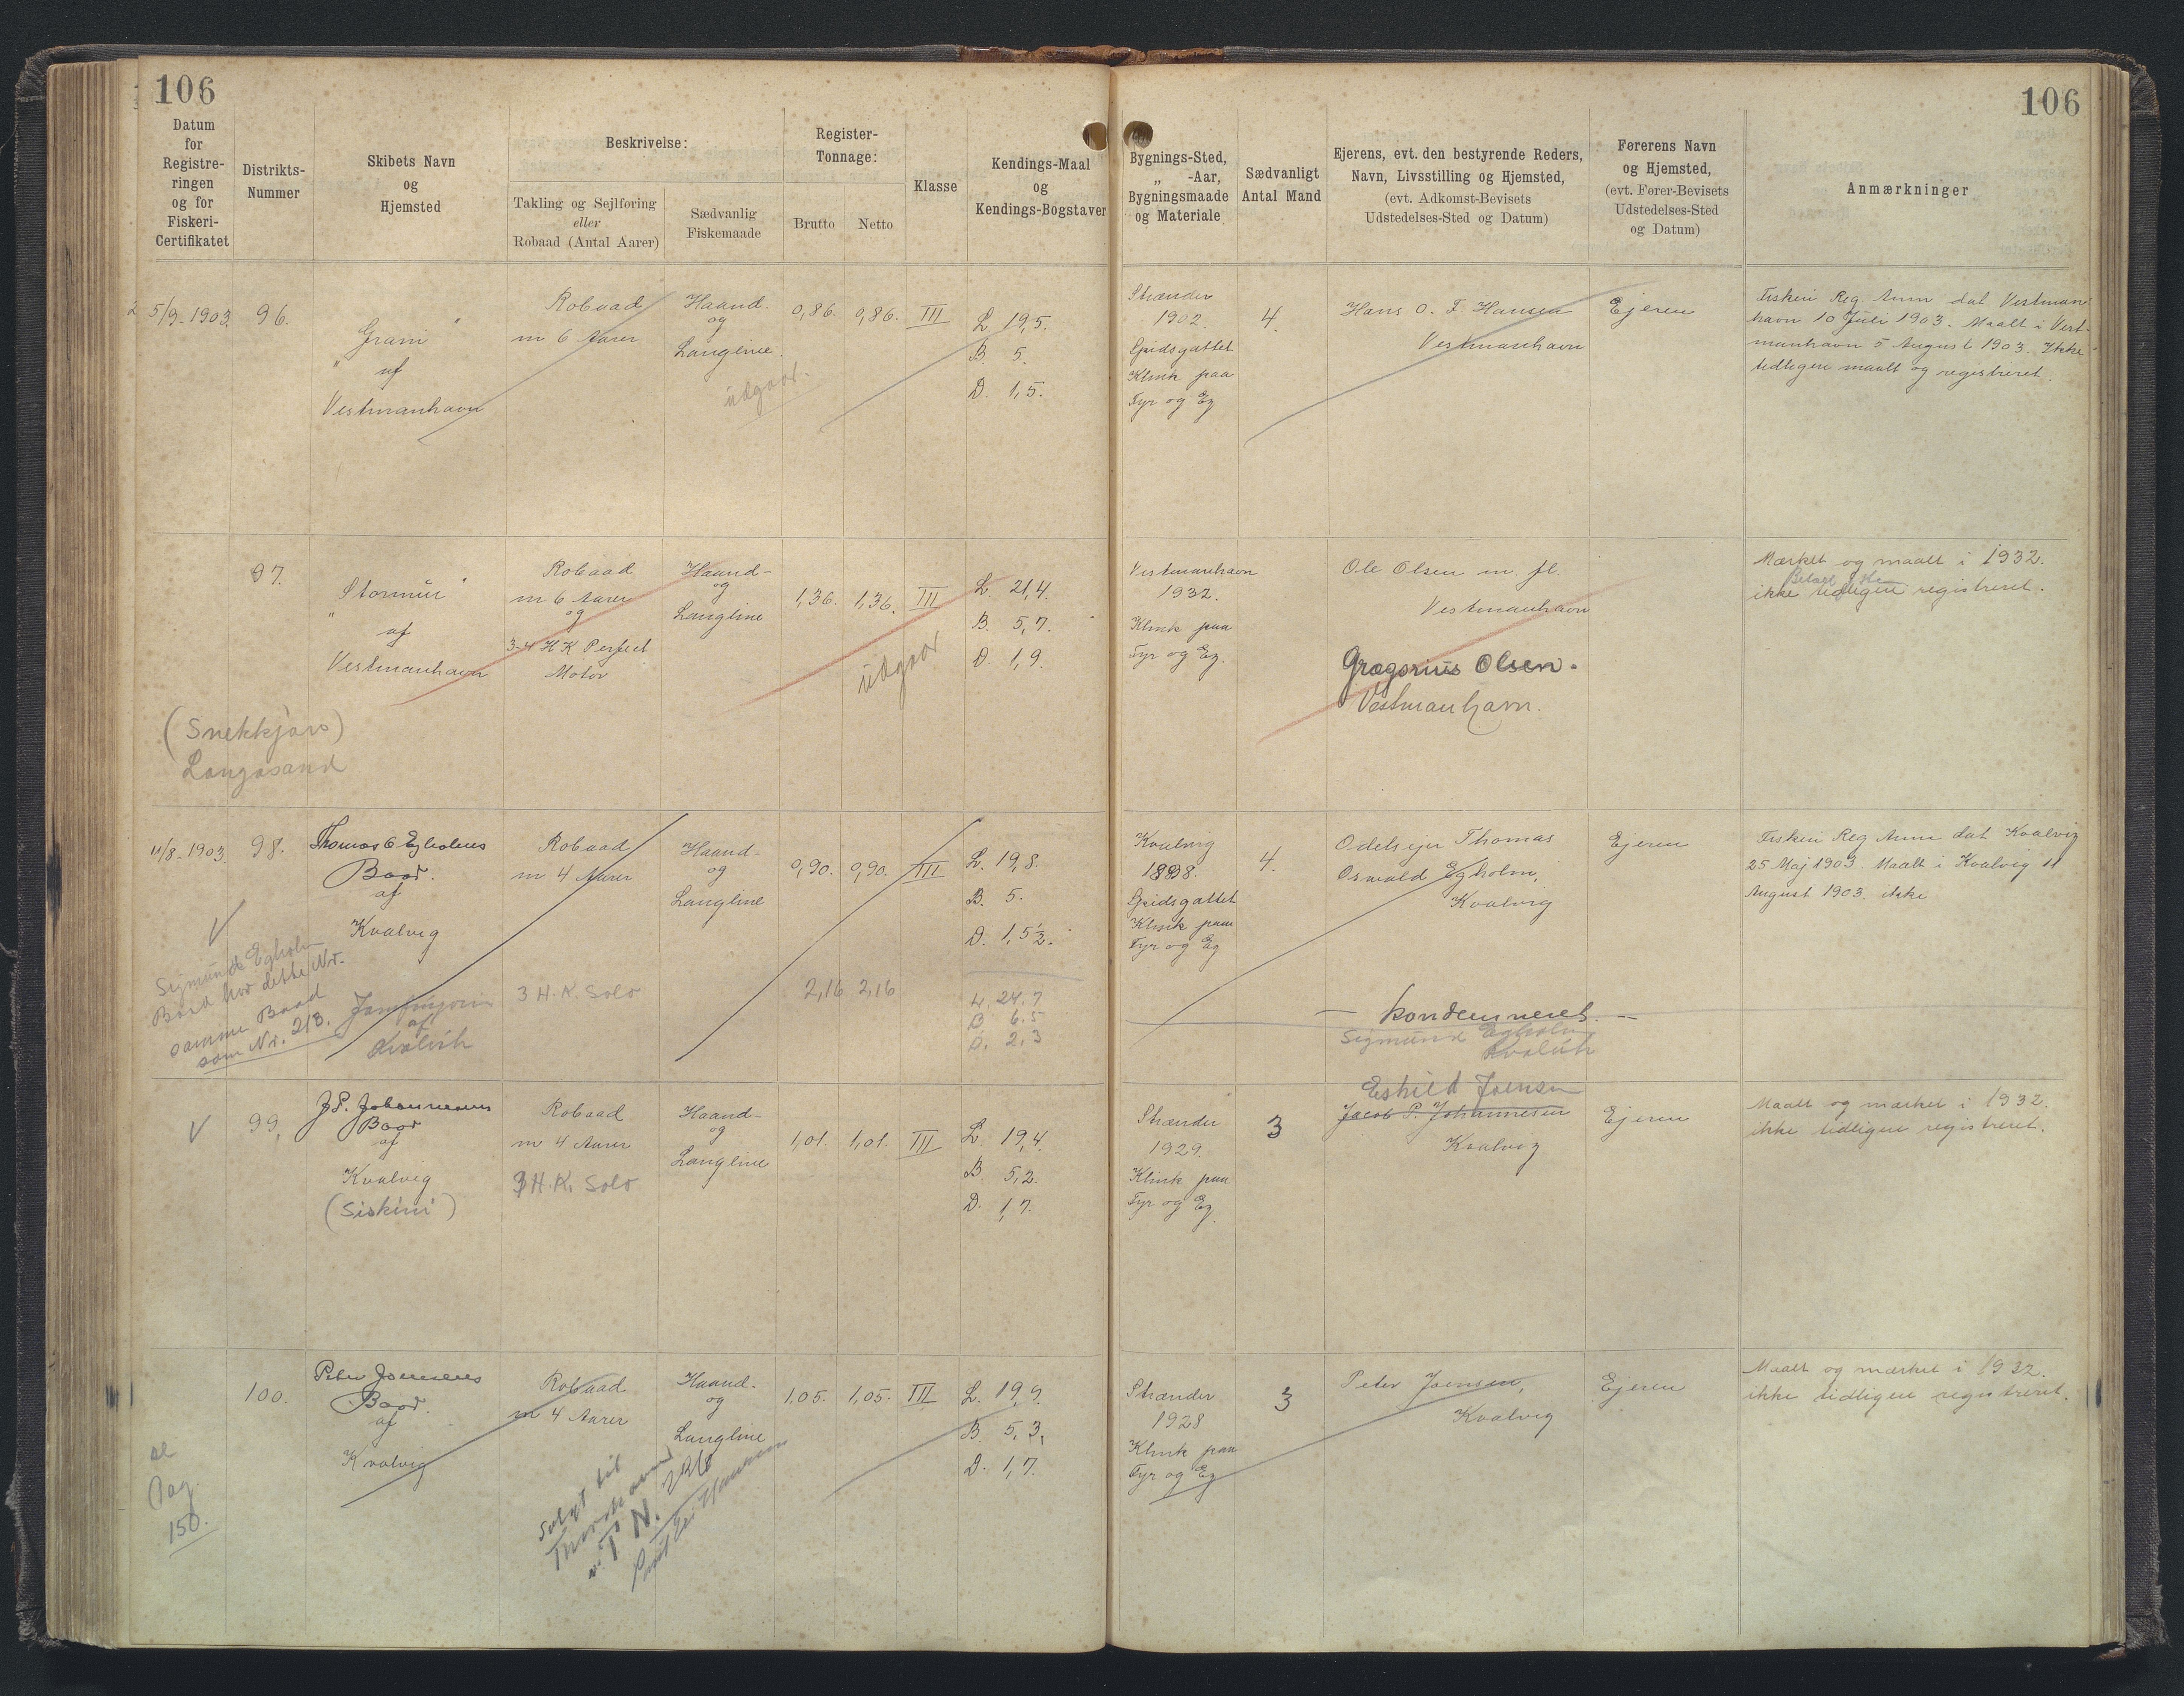 106
106
Datum
for
Registre-
ringen
og for
Fiskeri-
Certifikatet
Distrikts-
Nummer
Skibets Navn
og
Hjemsted
Beskrivelse:
Takling og Sejlføring
eller
Robaad (Antal Aarer)
Sædvanlig
Fiskemaade
Register-
Tonnage:
Brutto
Netto
Klasse
Kendings-Maal
og
Kendings-Bogstaver
Bygnings-Sted,
„ -Aar,
Bygningsmaade
og Materiale
Sædvanligt
Antal Mand
Ejerens, evt. den bestyrende Reders,
Navn, Livsstilling og Hjemsted,
(evt. Adkomst-Bevisets
Udstedelses-Sted og Datum)
Førerens Navn
og Hjemsted,
(evt. Fører-Bevisets
Udstedelses-Sted
og Datum)
Anmærkninger
5/9-1903.
96.
Grani"
" af
Vestmanhavn
Robaad
m 6 Aarer
Haand-
og
Langline.
udgaar.
0,86.
0,86.
III
L. 19,5.
B. 5.
D. 1,5.
Strænder
1902.
Spidsgattet
Klink paa
Fyr og Eg
4.
Hans O. F. Hansen
Vestmanhavn
Ejeren
Fiskeri Reg. Anm dat Vestman-
havn 10 Juli 1903. Maalt i Vest-
manhavn 5 August 1903. Ikke
tidligere maalt og registreret.
97.
Stormur"
" af
Vestmanhavn
(Snekkjan)
Langasand
Robaad
m 6 Aarer
og
3-4 HK Perfect
Motor
Haand-
og
Langline
1,36.
1,36.
III
udgaar
L. 21,4.
B. 5,7.
D. 1,9.
Vestmanhavn
1932.
Klink paa
Fyr og Eg.
Ole Olsen m. fl.
Vestmanhavn
Grægorius Olsen.
Vestmanhavn.
Mærket og maalt i 1932.
ikke tidligere registreret.
11/8-1903.
98.
Thomas O Egholms
Baad.
af
Kvalvig
Sigmund Egholm
Baad har dette Nr.
samme Baad
som Nr. 218.
af
Kvalvik
Robaad
m 4 Aarer
3 H.K. Solo
Haand-
og
Langline
0,90.
0,90.
III
2,16
2,16
L. 19,8.
B. 5.
D. 1,5½.
L. 24.7
B 6.5
D. 2.3
Kvalvig
1898.
Spidsgattet
Klink paa
Fyr og Eg
4.
Odelsejer Thomas
Oswald Egholm,
Kvalvig
— kondemneret. —
Sigmund Egholm
Kvalvik
Ejeren
Fiskeri Reg Anm dat Kvalvig
25 Maj 1903. Maalt i Kvalvig 11
August 1903. ikke
99.
J P. Johannesens
Baad
af
Kvalvig
(Siskini)
Robaad
m 4 Aarer
3 H.K. Solo
Haand-
og
Langline
1,01.
1,01.
III
L. 19,4.
B. 5,2.
D. 1,7.
Strænder
1929.
Klink paa
Fyr og Eg.
3
Eskild Joensen
Jacob P. Johannesen
Kvalvig
Ejeren
Maalt og mærket i 1932.
ikke tidligere registreret.
100.
Peter Joensens
Baad.
af
Kvalvig
se
Pag.
150.
Robaad
m 4 Aarer
Haand-
og
Langline
Solgt til
Thorshavn
1,05.
1,05.
III
L. 19,9.
B. 5,3.
D. 1,7.
Strænder
1928
Klink paa
Fyr og Eg
3
Peter Joensen,
Kvalvig
Ejeren
Maalt og mærket i 1932.
ikke tidligere registreret.